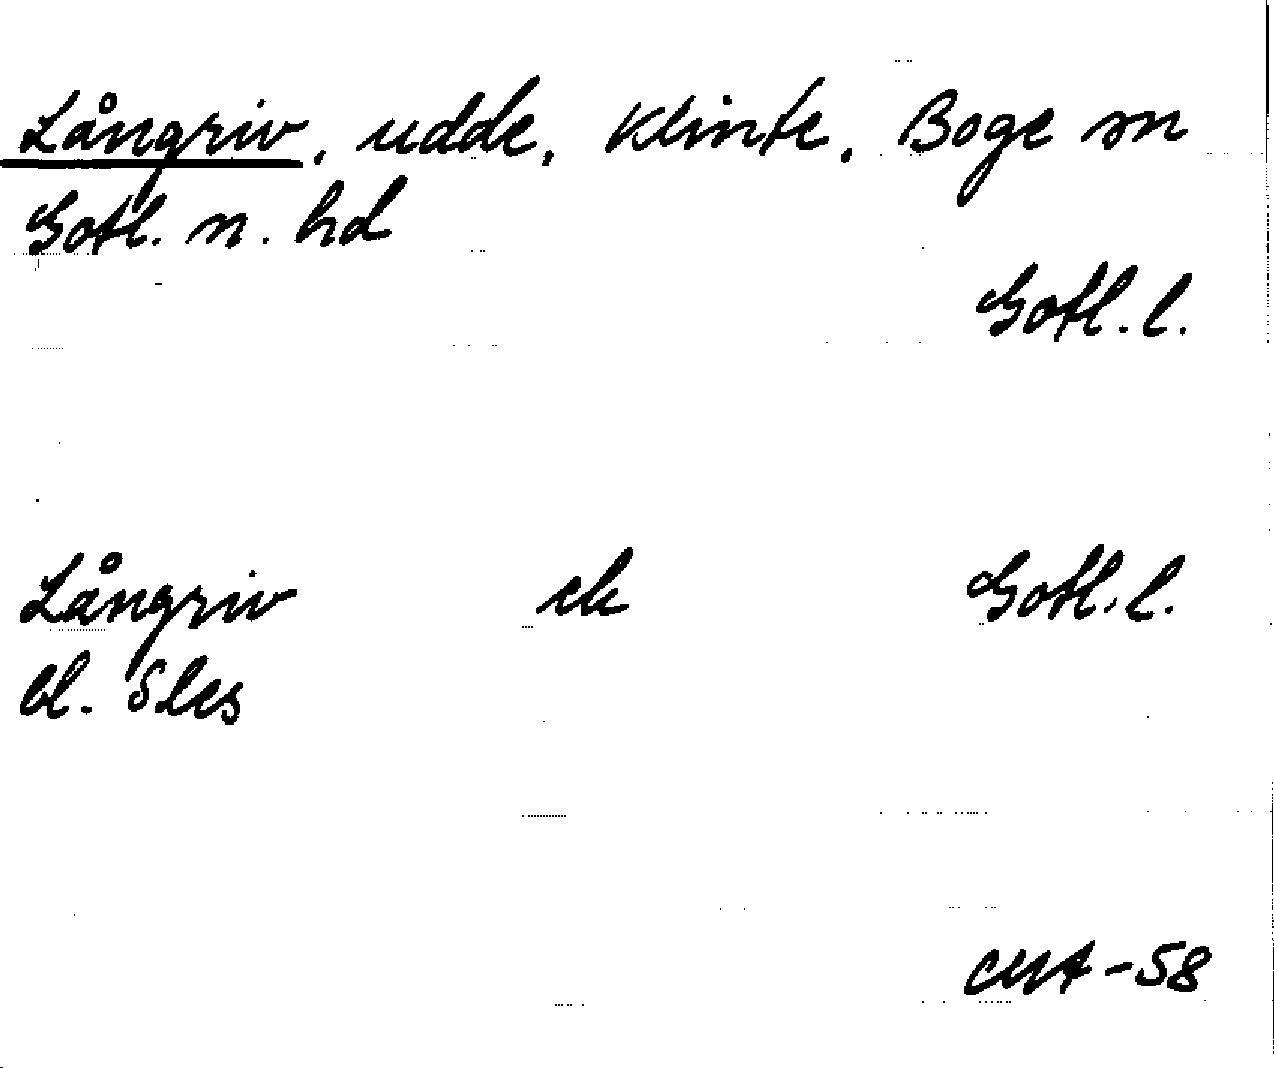 Långriv, udde, Klinte, Boge sn
Gotl. n. hd
Gotl. l.
Långriv ek Gotl. l.
bl. 8 les
CMA-58